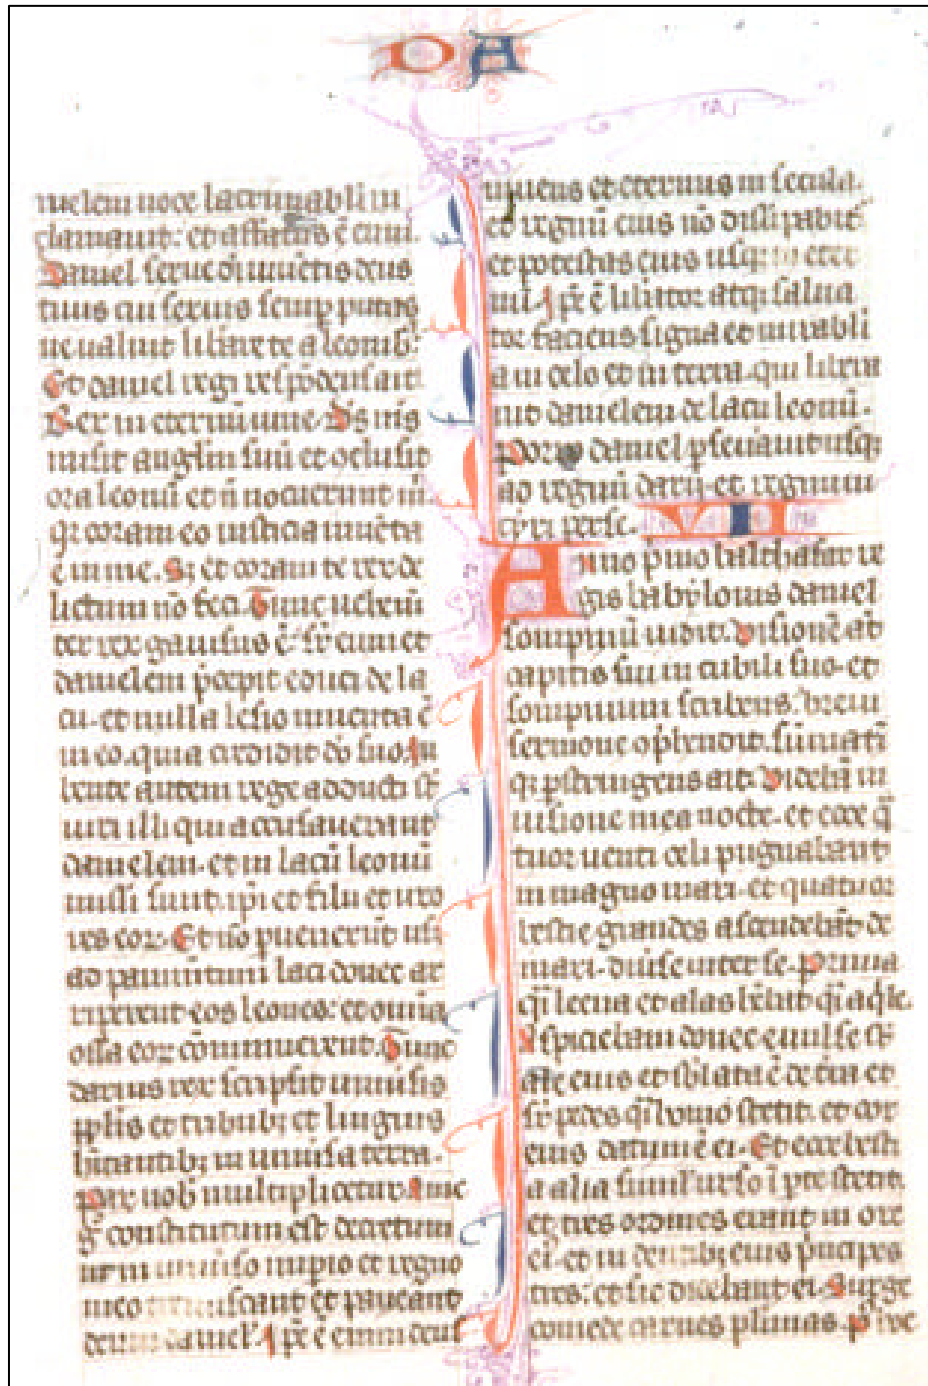 DA
nielem uoce lacrimabli in
clamauit: et affatus ē eum.
Daniel serue dī uiuētis deus
tuus cui seruis semp putas
ne ualuit liberare te a leonibꝫ
Et daniel regi respōdens ait
Rex in eternū uiue. Ds ms
misit anglm suū et oclusit
ora leonū et n̄ nocuerunt m̄.
qr coram eo iusticia inuēta
ē in me. Sꝫ et coram te rex de
lictum nō feci. Tunc uehem̄
ter rex gauisus ē sr̄ eum et
danielem p̄cepit educi de la
cu. et nulla lesio inuenta ē
in eo. quia credidit dō suo. Iu
bente autem rege adducti st̄
uiri illi qui accusauerant
danielem. et in lacū leonū
missi sunt. ipi et filii et uxo
res eoꝝ. Et nō puenerūt usqꝫ
ad pauim̄tum laci donec ar
riperent eos leones: et omīa
ossa eoꝝ cōminuerunt. Tunc
darius rex scripsit uniuersis
pplis et tribubꝫ et linguis
hitantibꝫ in uniūsa terra.
Pax uob multiplicetur. A me
g̊ constitutum est decretum
ut in uniuso impio et regno
meo et paueant
deum daniel. Ipē ē enim deus
uiuens et eternus in secula.
et regnū eius nō dissipabit̄
et potestas eius usqꝫ in eter
nū. Ipē ē liƀator atqꝫ salua
tor faciens signa et mirabli
a in celo et in terra. qui libera
uit danielem de lacu leonū.
Porro daniel pseuauit usqꝫ
ad regnū darii. et regnum
cyri perse. VII
Anno pͥmo balthasar re
gis babylonis daniel
sompniū uidit. Visionē at̄
capitis sui in cubili suo. et
sompnium scribens. breui
sermone oplendit. sūmatī
qꝫ pstringens ait. Videbā in
uisione mea nocte. et ecce q̄
tuor uenti celi pugnabant
in magno mari. et quatuor
bestie grandes ascendebāt de
mari. diūse inter se. Prima
qi leena et alas hēbat qi aqle.
Aspiciebam donec euulse st̄
ale eius et sblata ē de tra et
sr̄ pedes qi homo stetit. et cor
eius datum ē ei. Et ecce besti
a alia simil' urso ī pte stetit.
et tres ordines erant in ore
ei'. et in dentibꝫ eius pͥncipes
tres: et sic dicebant ei. Surge
comede carnes plimas. P'